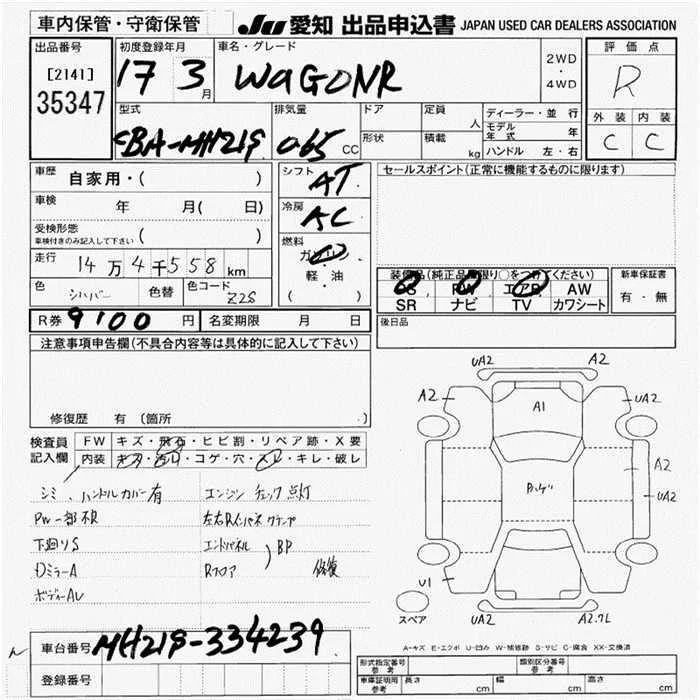 車内保管・守衛保管 JU 愛知 出品申込書 JAPAN USED CAR DEALERS ASSOCIATION
出品番号 初度登録年月 車名・グレード 評価点
[2141] 17 3月 WAGONR 2WD・4WD R
35347
型式 排気量 ドア 定員 ディーラー・並行 外装 内装
CBA-MH21S 0.65 CC 人 モデル年式 年 C C
形状 積載 kg ハンドル 左・右
車歴 自家用・( ) シフト AT セールスポイント(正常に機能するものに限ります)
車検 年 月( 日) 冷房 AC
受検形態 ( )
車検付きのみ記入して下さい
燃料 ガソリン・軽・油 ( )
走行 14万4千558km
装備品(純正品に限り○をつけてください) 新車保証書
PS PW エアB AW 有・無
SR ナビ TV カワシート
色 シルバー 色替 色コード Z2S
R券 9100円 名変期限 月 日 後日品
注意事項申告欄(不具合内容等は具体的に記入して下さい)
修復歴 有 (箇所 )
検査員 FW キズ・飛石・ヒビ割・リペア跡・X要
記入欄 内装 キズ・汚れ・コゲ・穴・スレ・キレ・破レ
シミ、ハンドルカバー有 エンジンチェック点灯
PW一部不良
下廻りS エンドパネル
DミラーA Rフロア BP 修復
UA2 A2
A2 A1 UA2
A2
UA2
U1
UA2 A2.7L
スペア
A-キズ E-エクボ U-凹み W-補修跡 S-サビ C-腐食 XX-交換済
車台番号 MH21S-334239
登録番号
形式指定番号 参考 類別区分番号 参考
車庫証明用 参考 長さ cm 幅 cm 高さ cm